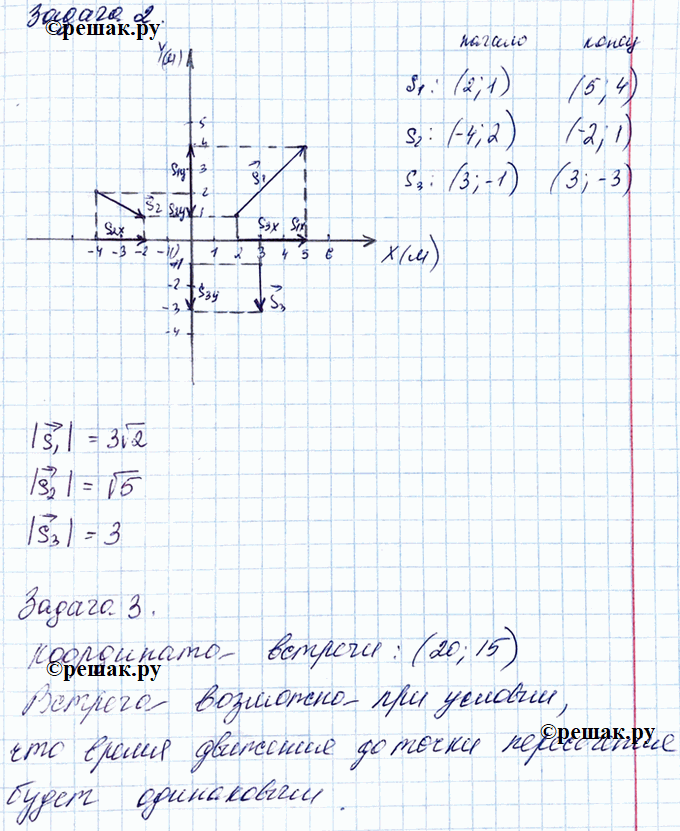 Задача 2.
©решак.ру
Y(м)
начало конец
S₁: (2; 1) (5; 4)
S₂: (-4; 2) (-2; 1)
S₃: (3; -1) (3; -3)
5
4
3
2
1
S₁y
S₂y
S₁
S₂
S₂x
S₃x S₁x
-4 -3 -2 -1 0 1 2 3 4 5 6
X(м)
-1
-2
-3
-4
S₃y
S₃
|S₁| = 3√2
|S₂| = √5
|S₃| = 3
Задача 3.
Координата встречи: (20; 15)
©решак.ру
Встреча возможна при условии,
©решак.ру
что время движения до точки пересечения
будет одинаковым.